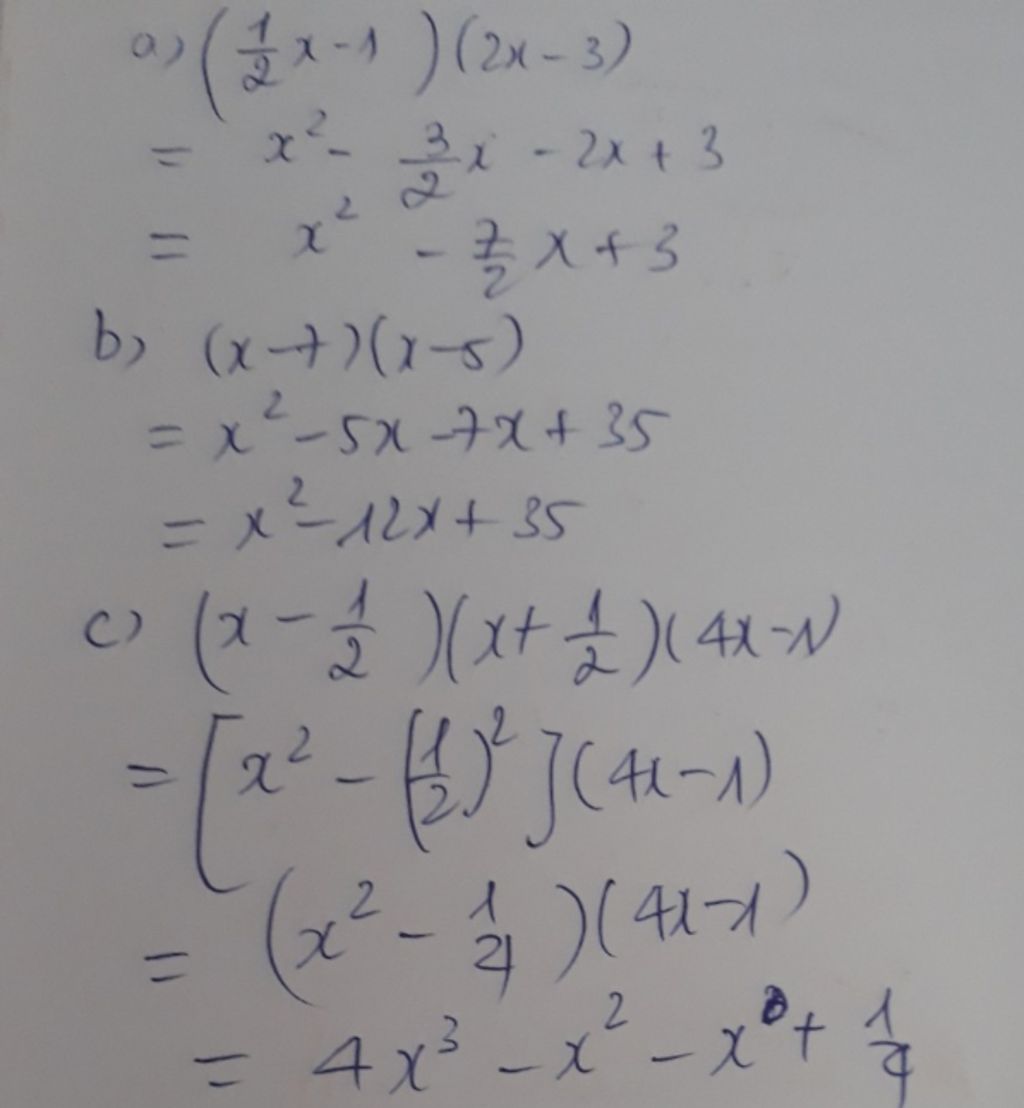 a) (1/2 x - 1)(2x - 3)
= x² - 3/2 x - 2x + 3
= x² - 7/2 x + 3
b) (x - 7)(x - 5)
= x² - 5x - 7x + 35
= x² - 12x + 35
c) (x - 1/2)(x + 1/2)(4x - 1)
= [x² - (1/2)²](4x - 1)
= (x² - 1/4)(4x - 1)
= 4x³ - x² - x + 1/4